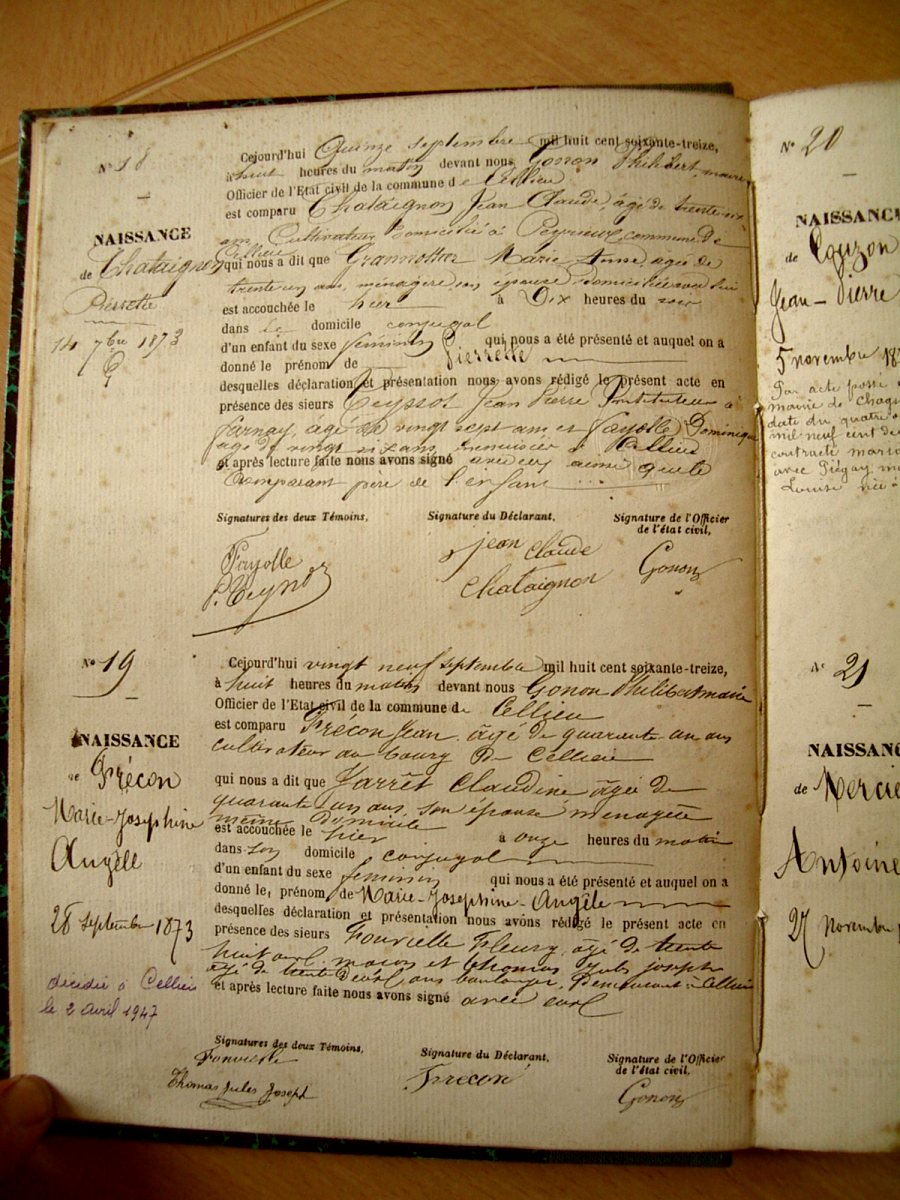 N° 18
NAISSANCE
de Chataignon
Pierrette
14 7bre 1873
Cejourd'hui Quinze septembre mil huit cent soixante-treize,
à huit heures du matin devant nous Gonon Philibert maire
Officier de l'Etat civil de la commune de Cellieu
est comparu Chataignon Jean Claude, âgé de trente six
ans Cultivateur domicilié à Peyrieux, commune de
Cellieu
qui nous a dit que Grannotton Marie Anne, agée de
trente un ans, ménagère son épouse domiciliée avec lui
est accouchée le hier à Dix heures du soir
dans le domicile conjugal
d'un enfant du sexe feminin qui nous a été présenté et auquel on a
donné le prénom de Pierrette
desquelles déclaration et présentation nous avons rédigé le présent acte en
présence des sieurs Teyssot Jean Pierre Instituteur à
Farnay, âgé de vingt sept ans et Fayolle Dominique
âgé de vingt six ans menuisier à Cellieu
et après lecture faite nous avons signé avec eux ainsi que le
Comparant père de l'enfant
Signatures des deux Témoins,
Signature du Déclarant,
Signature de l'Officier
de l'état civil,
Fayolle
jean Claude
Chataignon
Gonon
N° 19
NAISSANCE
de Frécon
Marie-Josephine
Angèle
28 Septembre 1873
décédée à Cellieu
le 2 avril 1947
Cejourd'hui vingt neuf septembre mil huit cent soixante-treize,
à huit heures du matin devant nous Gonon Philibert maire
Officier de l'Etat civil de la commune de Cellieu
est comparu Frécon Jean âgé de quarante un ans
cultivateur au bourg de Cellieu
qui nous a dit que Jarrêt Claudine âgée de
quarante un ans son épouse ménagère
même domicile
est accouchée le hier à onze heures du matin
dans son domicile conjugal
d'un enfant du sexe feminin qui nous a été présenté et auquel on a
donné le, prénom de Marie-Josephine-Angèle
desquelles déclaration et présentation nous avons rédigé le présent acte en
présence des sieurs Fonvielle Fleury âgé de trente
huit ans, maçon et thomas jules joseph
âgé de trente deux ans boulanger, Demeurant à Cellieu
et après lecture faite nous avons signé avec eux
Signatures des deux Témoins,
Signature du Déclarant,
Signature de l'Officier
de l'état civil,
Fonvielle
Thomas Jules Joseph
Frécon
Gonon
N° 20
NAISSANCE
de Couzon
Jean-Pierre
5 novembre 18
Par acte passé
mairie de Chagn
date du quatre
mil neuf cent de
contracté maria
avec Piégay m
Louise née
N° 21
NAISSANC
de Mercie
Antoine
27 novembre